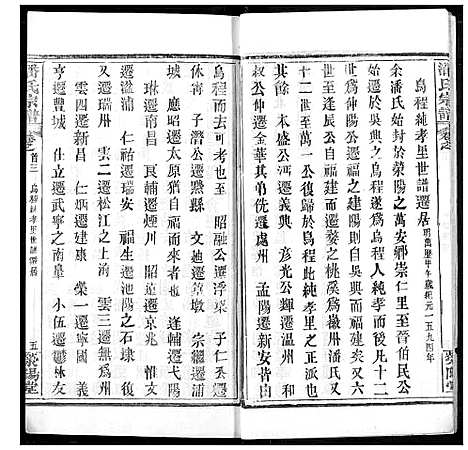 潘氏宗譜
烏程純孝里世譜遷居 明萬曆甲午歲紀元一五九四年
余潘氏始於滎陽之萬安鄉崇仁里至晉伯民公
遷烏程遂爲烏程人純孝里而後凡十二
世至仲陽公遷建陽則自吳興而福建矣又六
遷婺之桃溪爲徽州潘氏又
十二世至萬一公復歸於烏程純孝里之正派也
其餘 永盛公遷義興 彥光公遷荆州
叔公仲遷金華其後遷處州 孟陽遷新安皆自
烏程而去可考也至 昭融公遷 子仁遷
休甯 子潛公遷黟縣 文廸遷草墩 宗繼遷
城 應昭遷太原猶自福而往也 逢輔遷弋陽
琳遷南昌 良輔遷煙州 遷京兆 惟
遷溢浦 仁祐遷瑞安 福生遷池之石埭 復
遷荆州 雲二遷松江之上海 雲三遷無爲州
雲四遷新昌 仁炳遷建康 榮一遷寧國 義
亨遷豐城 仕立遷武寧之南皐 小伍遷樾林友
潘氏宗譜
卷之首三 烏程純孝里世譜遷居
五
滎陽堂